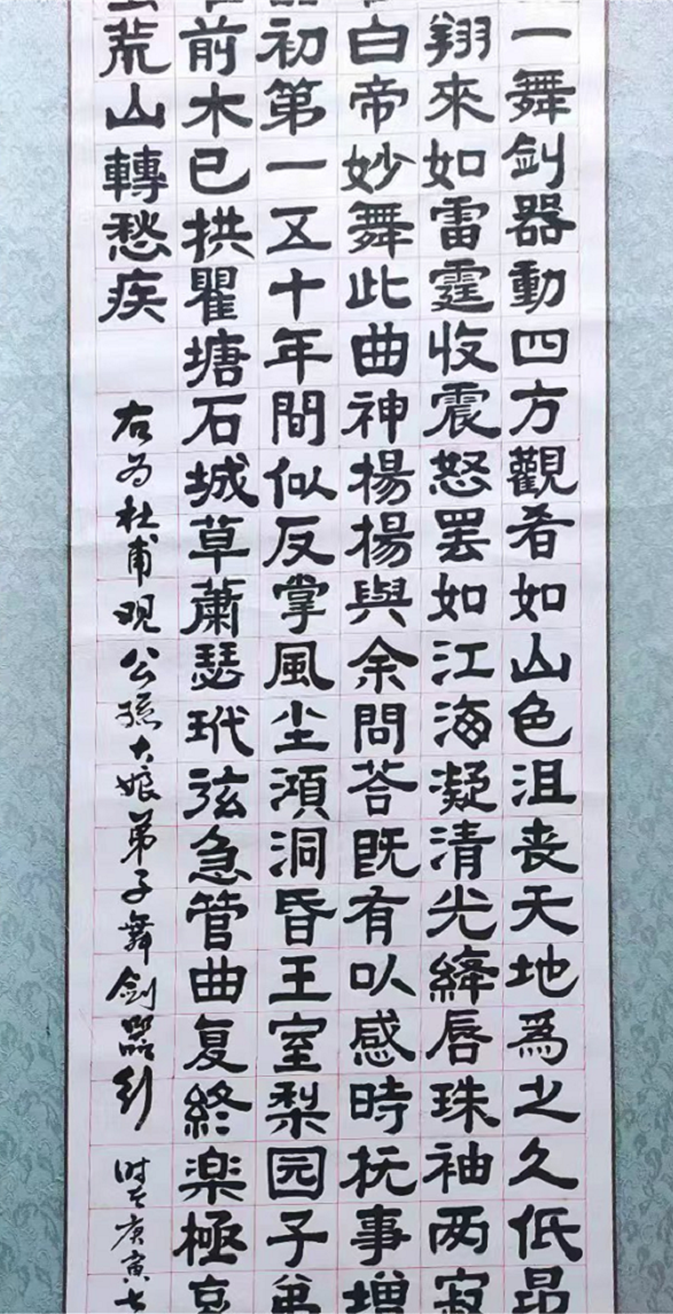 一舞剑器動四方觀者如山色沮丧天地為之久低昂
翔來如雷霆收震怒罷如江海凝清光絳唇珠袖两寂
白帝妙舞此曲神揚揚與余問荅既有以感時抚事增
初第一五十年間似反掌風尘澒洞昏王室梨园子弟
前木已拱瞿塘石城草蕭瑟玳弦急管曲复終楽極哀
荒山轉愁疾
右为杜甫观公孫大娘弟子舞劍器行 时在庚寅七